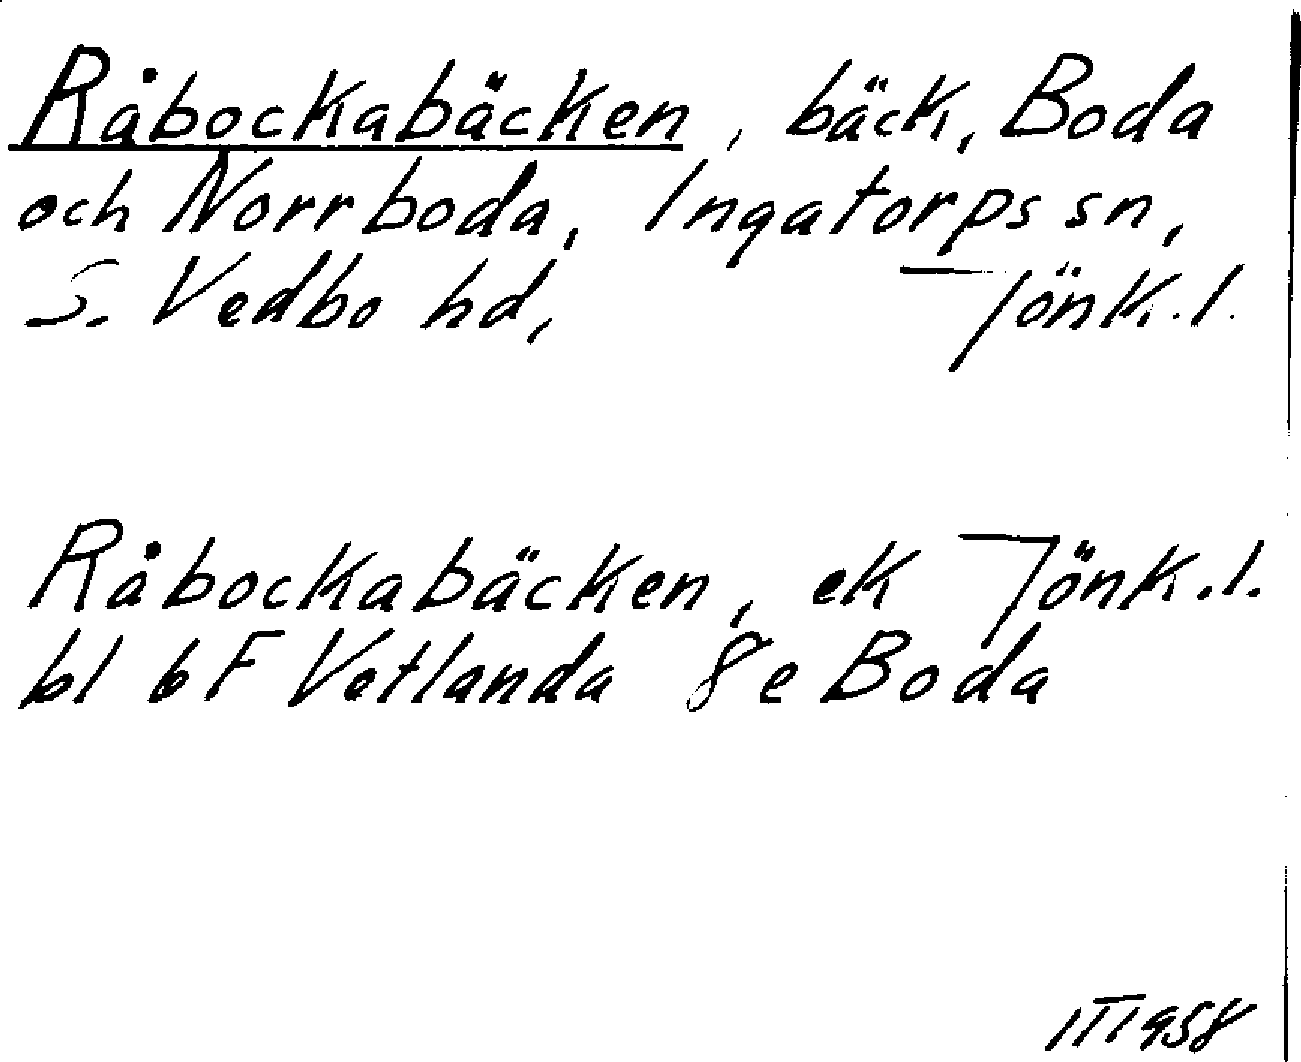 Råbockabäcken, bäck, Boda
och Norrboda, Ingatorps sn,
S. Vedbo hd, Jönk.l.
Råbockabäcken, ek Jönk.l.
bl 6F Vetlanda 8e Boda